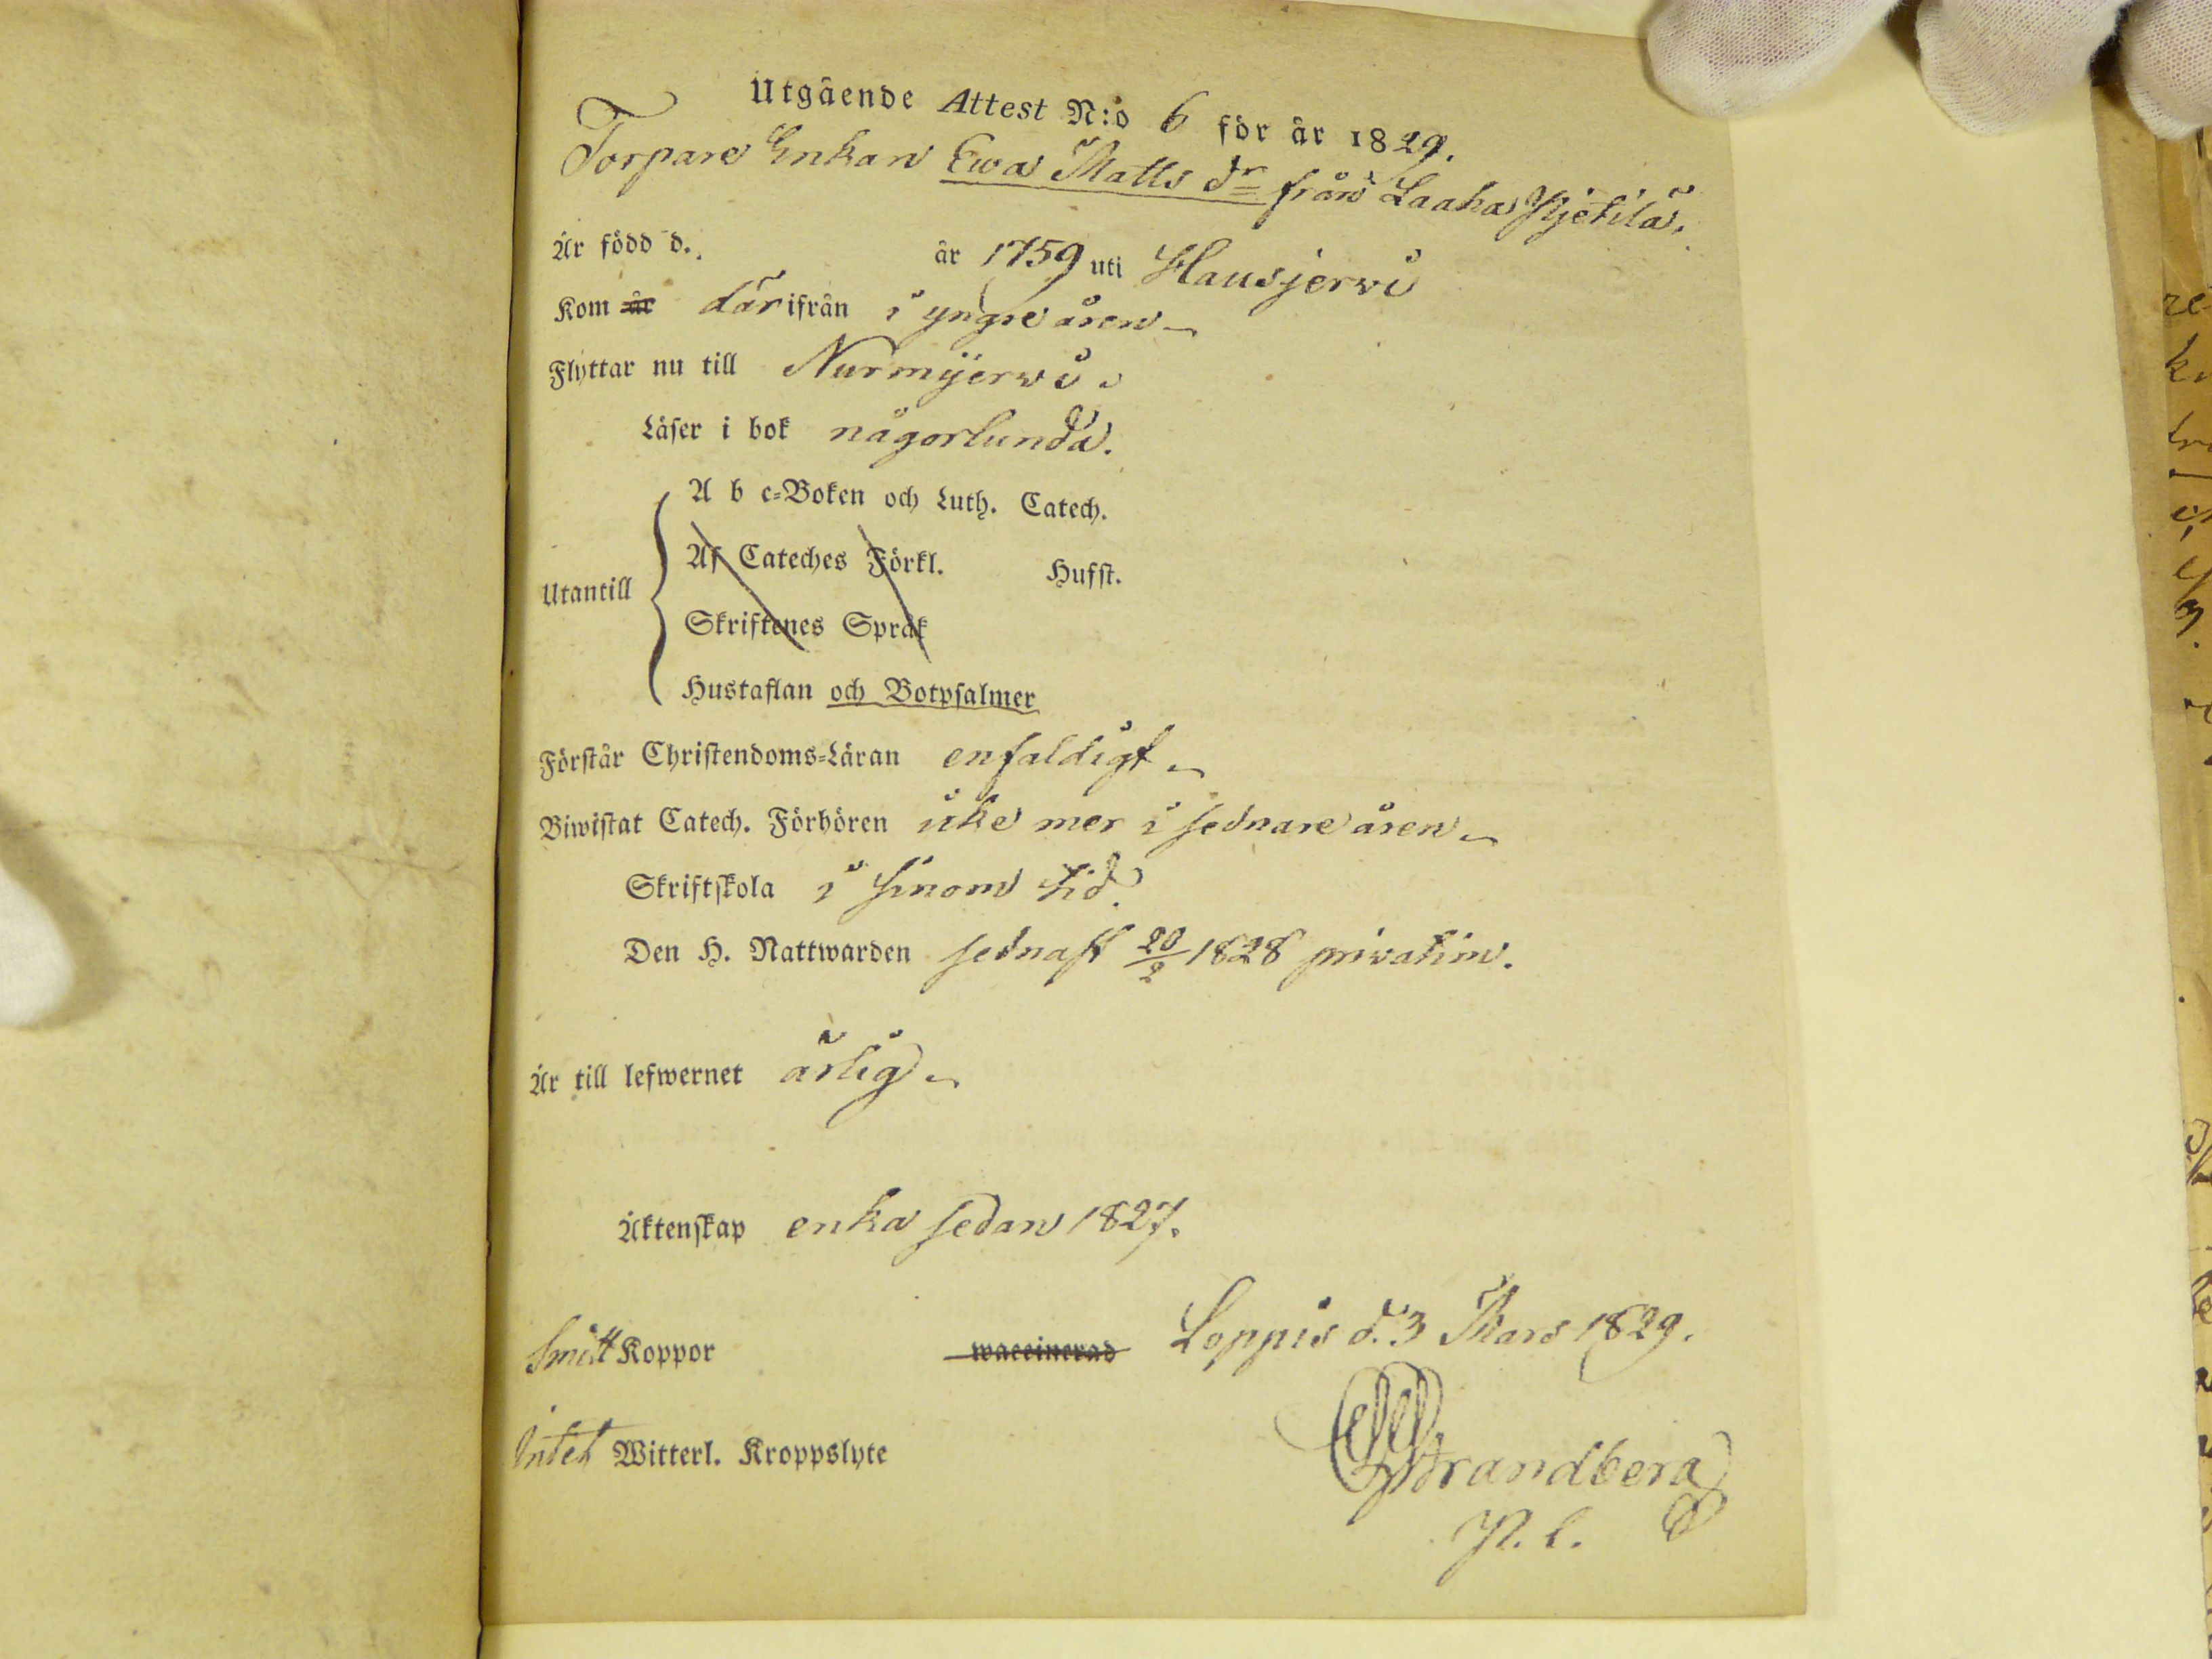 Utgående Attest N:o 6 för år 1829.
Torpare Enkan Ewa Matts dr från Laaka
Är född d. år 1759 uti Hausjerwi
Kom år därifrån i yngre åren
Flyttar nu till Nurmijerwi.
Läser i bok någorlunda.
A b c-Boken och Luth. Catech.
Af Cateches Förkl. Husst.
Utantill
Skriftenes Språk
Hustaflan och Botpsalmer
Förstår Christendoms-Läran enfaldigt
Biwistat Catech. Förhören icke mer i sednare åren
Skriftskola i sinom tid.
Den H. Nattwarden sednast 20/2 1828 privatim.
Är till lefwernet ärlig
Äktenskap enka sedan 1827.
Loppis d. 3 Mars 1829.
Koppor waccinerad
Intet Witterl. Kroppslyte
Strandberg